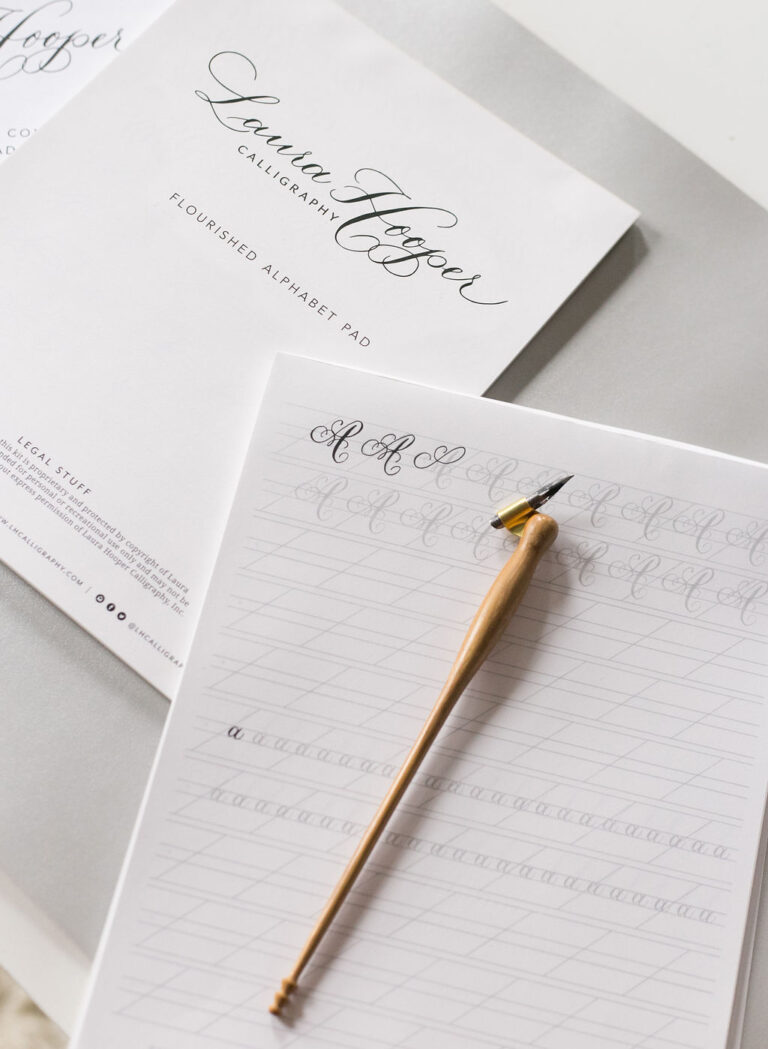 Hooper
Laura Hooper
CALLIGRAPHY
FLOURISHED ALPHABET PAD
LEGAL STUFF
this kit is proprietary and protected by copyright of Laura
for personal or recreational use only and may not be
express permission of Laura Hooper Calligraphy, Inc.
WWW.LHCALLIGRAPHY.COM | @LHCALLIGRAPH
A A
A A A A A A A
A A A A A A A A A A
a a a a a a a a a a a a a a a a a a a a a a a a
a a a a a a a a a a a a a a a a a a a a a a a a